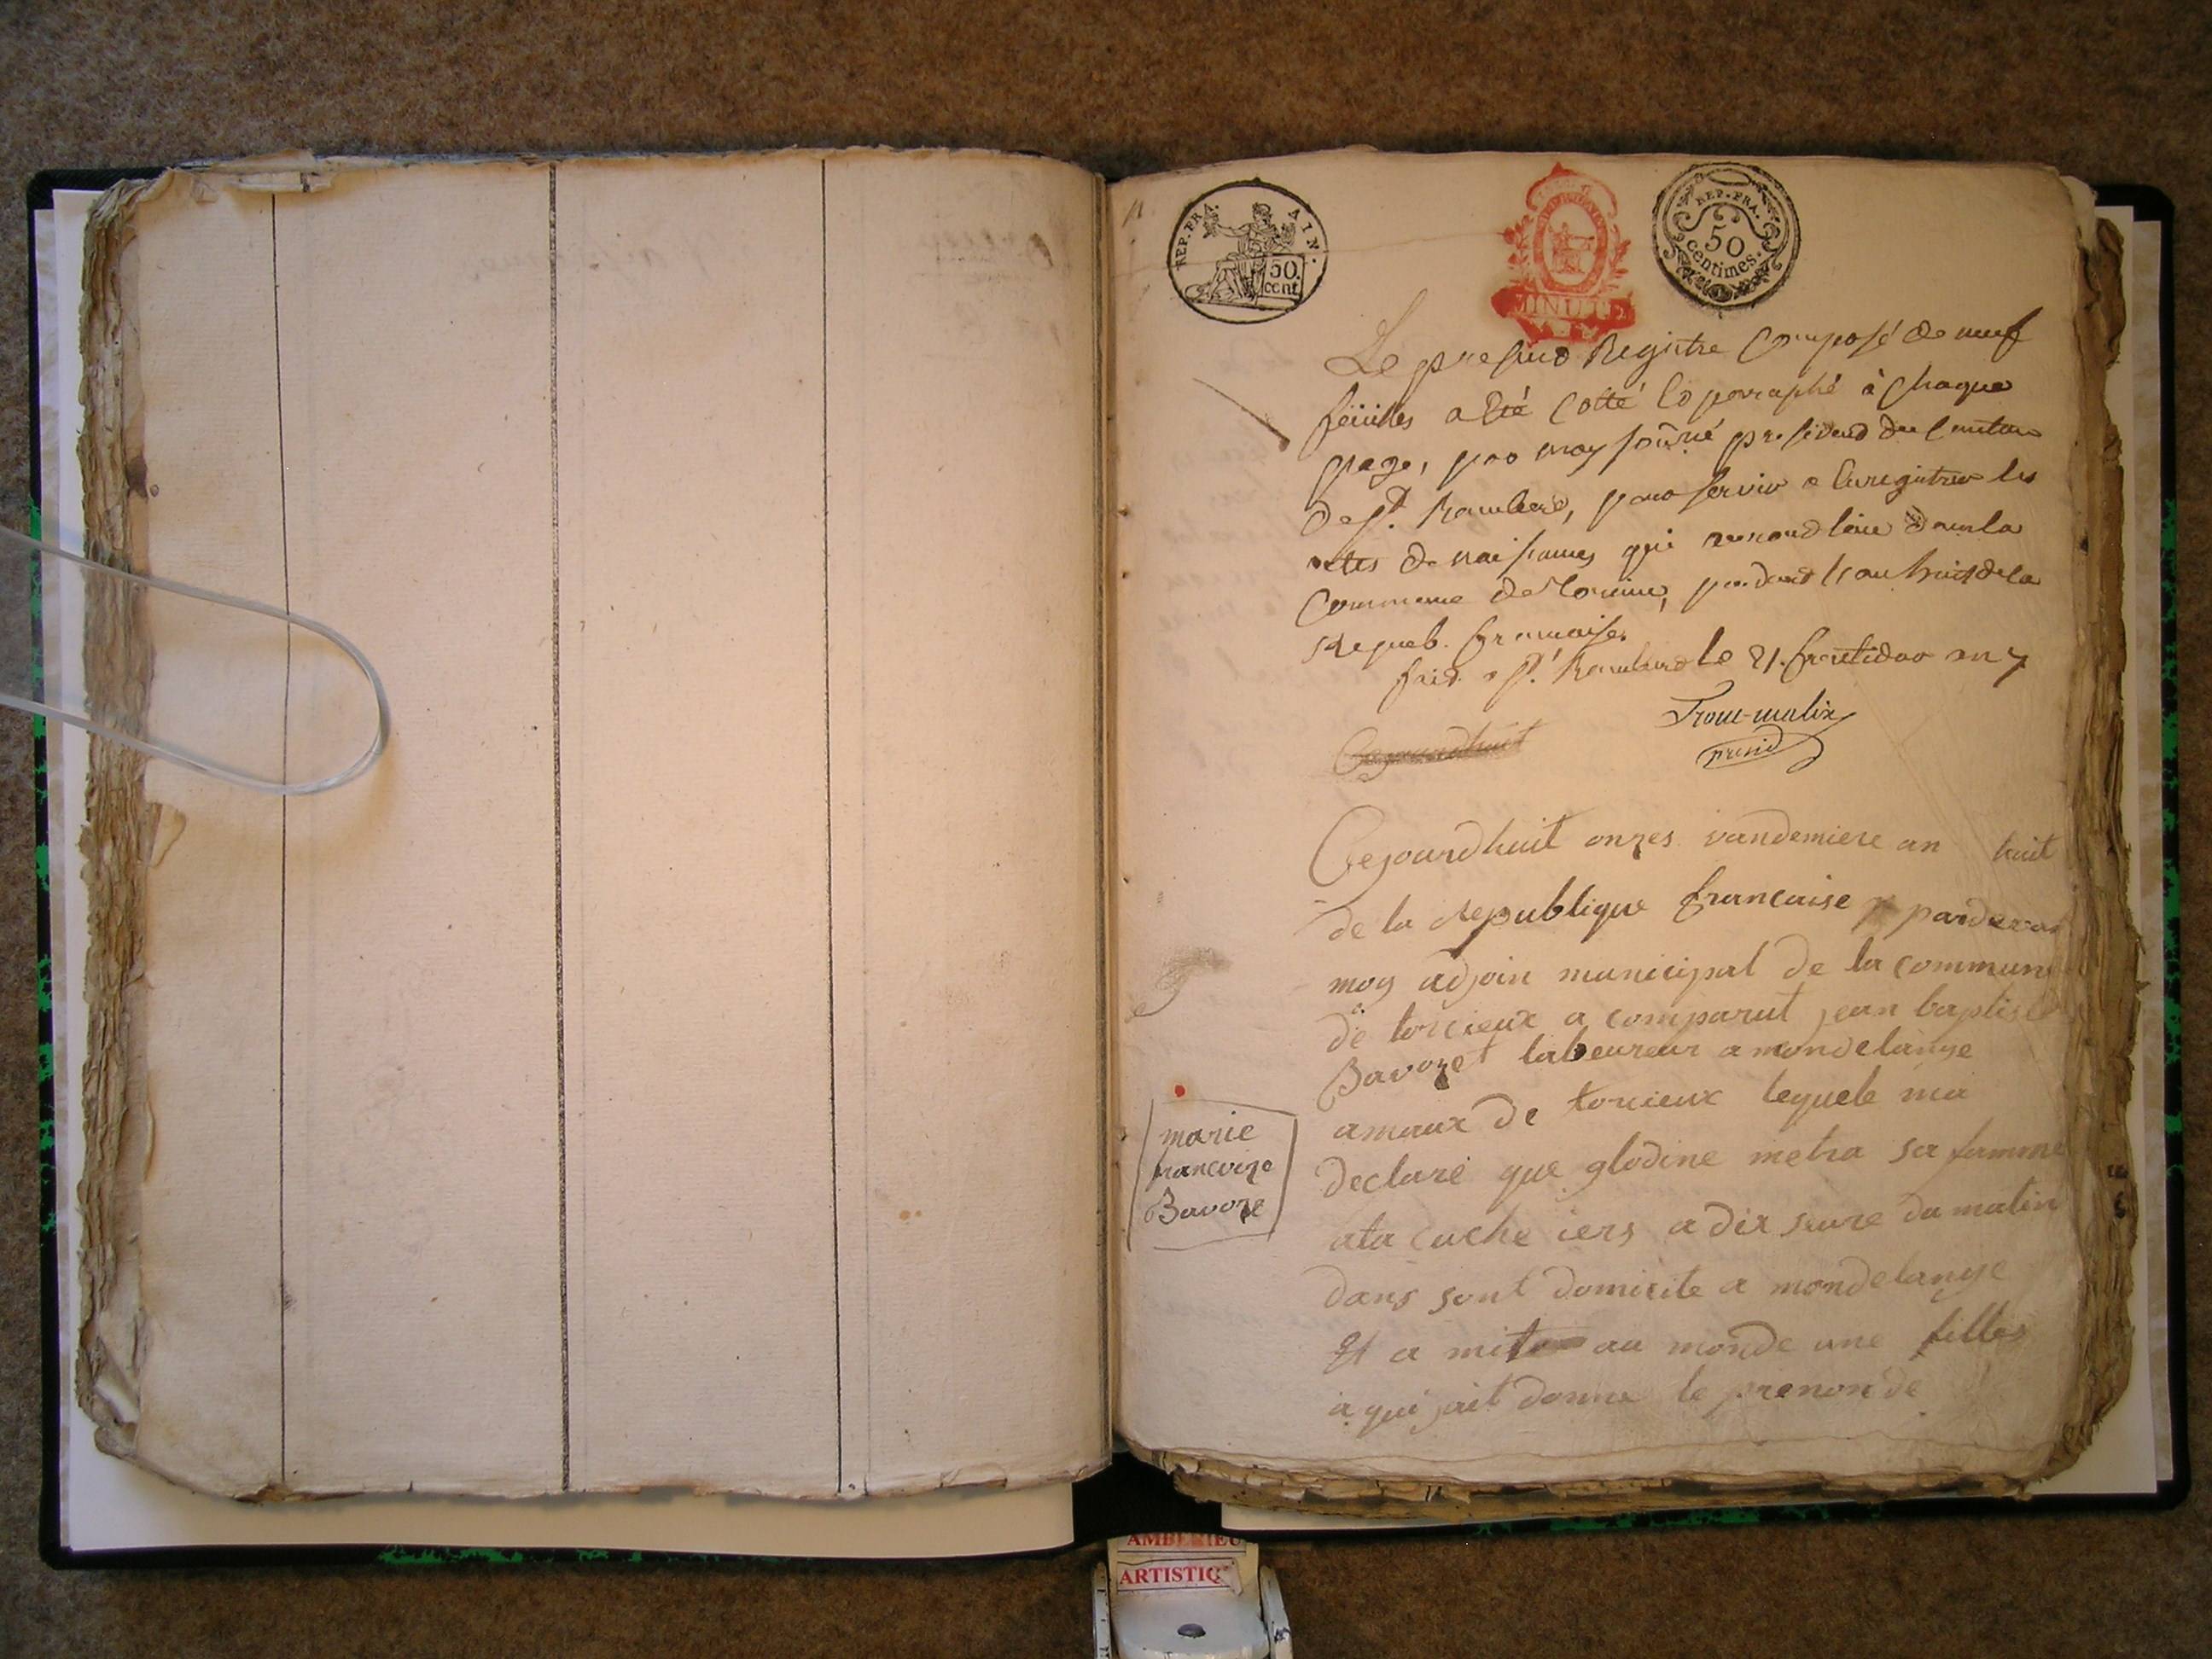 REP. FRA. AIN.
50.
cent.
MINUTE
REP. FRA.
50
centimes.
Le present Registre Composé de neuf
feüilles a Eté Cotté Et paraphé à Chaque
page, par moy soûné president du Canton
De St. Rambert, pour servir a Enregistrer les
actes de naissances qui auront lieu dans la
Commune de Torcieu, pendant l'an huit de la
Repueb. française.
fait a St. Rambert le 21. fructidor an 7
Trour-malix
presid
Cejourdhuit
Cejourdhuit onzes vandemiere an huit
de la Republique francaise pardevan
moy adjoin municipal de la commune
de torcieux a comparut jean baptiste
Bavozet labeureur a mondelange
amaux de torcieux lequele ma
declaré que glodine metra sa famme
ata cuche iers a dix sure du matin
dans sont domicile a mondelange
Et a mit au monde une filles
a qui jait donne le prenon de
marie
francoize
Bavoze
AMBERIEU
ARTISTIQ